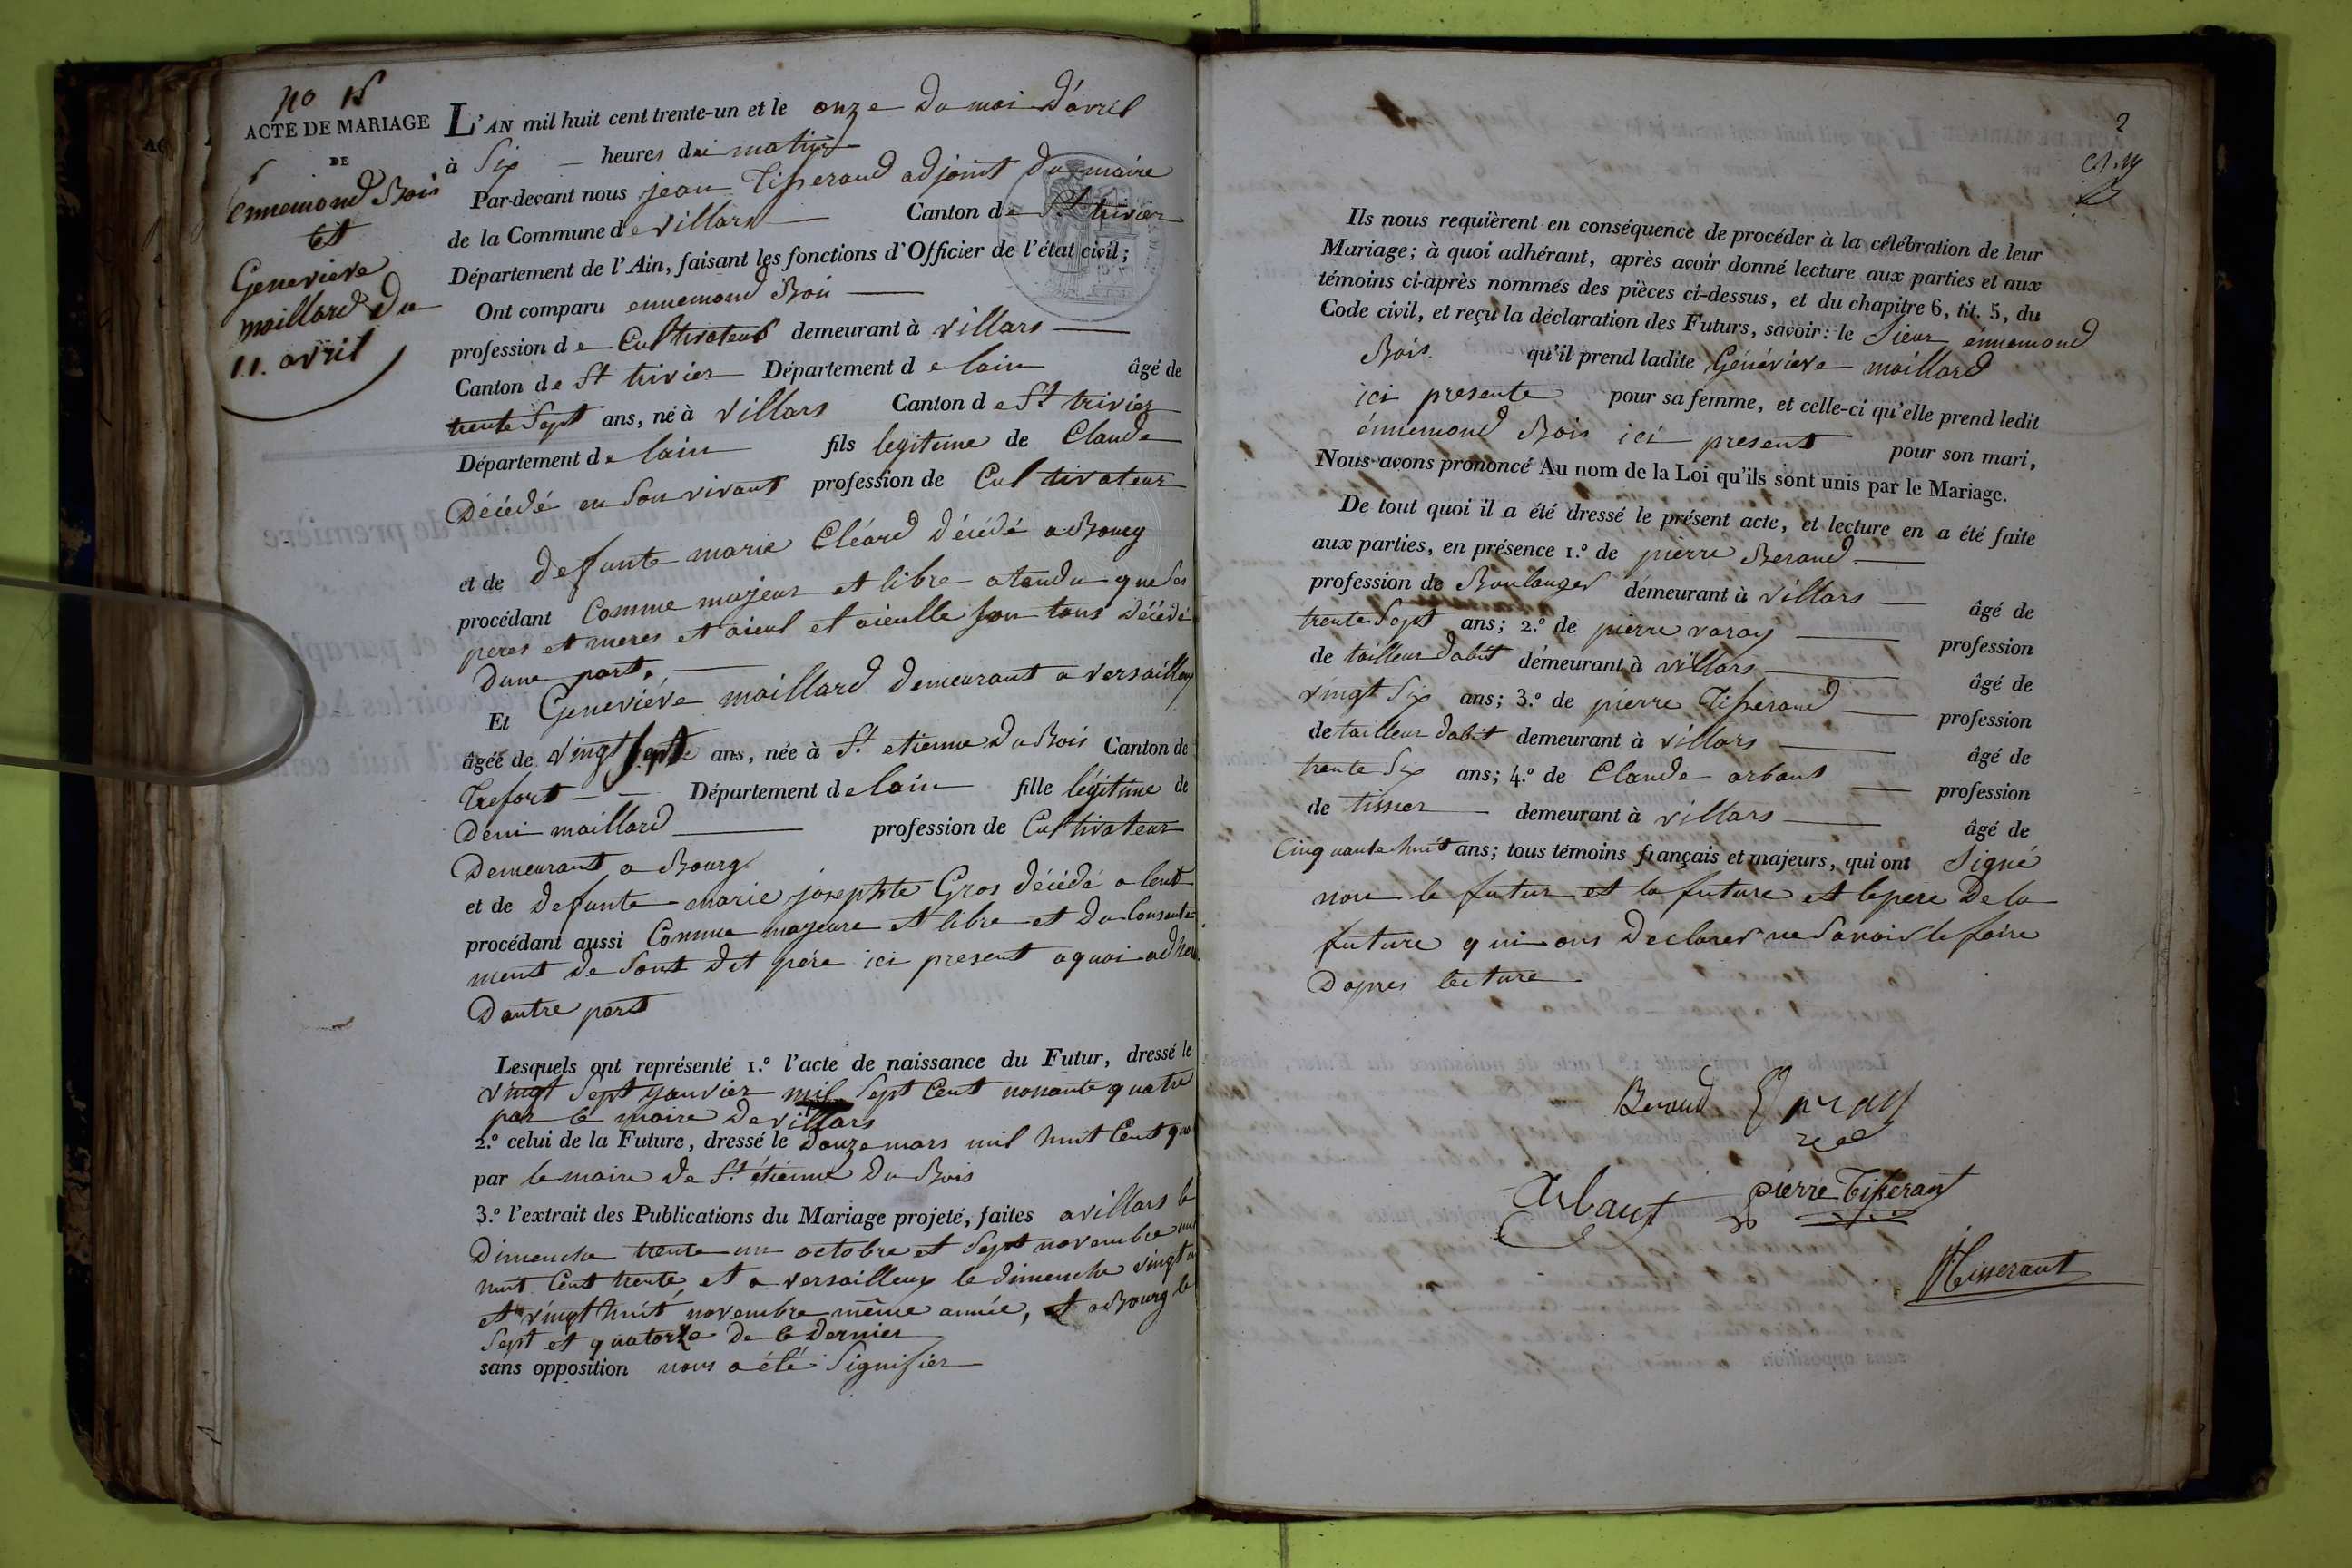 no 15
ACTE DE MARIAGE
DE
ennemond Bois
et
Genevieve
maillard du
11. avril
L'AN mil huit cent trente-un et le onze du moi d'avril
à Six heures du matin
Par-devant nous jean Tisserand adjoint du maire
de la Commune de villars Canton de St trivier
Département de l'Ain, faisant les fonctions d'Officier de l'état civil;
Ont comparu ennemond Bois
profession de Cultivateur demeurant à villars
Canton de St trivier Département de lain âgé de
trente Sept ans, né à villars Canton de St trivier
Département de lain fils legitime de Claude
Décédé en Son vivant profession de Cultivateur
et de defunte marie Cléard décédé a Bourg
procédant Comme majeur et libre atendu que Ses
peres et meres et aieul et aieulle son tous décédé
Dune part.
Et Geneviéve maillard demeurant a versailleux
âgée de vingt Sept ans, née à St. etienne du Bois Canton de
Trefort Département de lain fille légitime de
Deni maillard profession de Cultivateur
Demeurant a Bourg
et de defunte marie josephte Gros décédé a lent
procédant aussi Comme majeure et libre et du Consente
ment de Sont dit pére ici present aquoi adhere
Dautre part
Lesquels ont représenté 1.º l'acte de naissance du Futur, dressé le
vingt Sept yanvier mil Sept Cent nonante quatre
par le maire de villars
2.º celui de la Future, dressé le Douze mars mil huit Cent qua
par le maire de St. étienne du Bois
3.º l'extrait des Publications du Mariage projeté, faites a villars le
Dimenche trente un octobre et Sept novembre mil
huit Cent trente, et a versailleux le dimenche vingt un
et vingt huit novembre même année, et a Bourg le
Sept et quatorze de ce dernier
sans opposition nous a été Signifier
2
Ils nous requièrent en conséquence de procéder à la célébration de leur
Mariage; à quoi adhérant, après avoir donné lecture aux parties et aux
témoins ci-après nommés des pièces ci-dessus, et du chapitre 6, tit. 5, du
Code civil, et reçu la déclaration des Futurs, savoir: le Sieur énnemond
Bois. qu'il prend ladite Généviève maillard
ici presente pour sa femme, et celle-ci qu'elle prend ledit
énnemond Bois ici present pour son mari,
Nous avons prononcé Au nom de la Loi qu'ils sont unis par le Mariage.
De tout quoi il a été dressé le présent acte, et lecture en a été faite
aux parties, en présence 1.º de pierre Beraud
profession de Boulanger demeurant à villars âgé de
trente Sept ans; 2.º de pierre varay profession
de tailleur dabit demeurant à villars âgé de
vingt Six ans; 3.º de pierre Tisserand profession
de tailleur dabit demeurant à villars âgé de
trente Six ans; 4.º de Claude arbant profession
de tisser demeurant à villars âgé de
Cinquante huit ans; tous témoins français et majeurs, qui ont Signé
non le futur et la future et le pere de la
future qui ons Declarer ne Savoir le faire
Dapres lecture
Beraud
Arbant pierre Tisserant
Tisserant